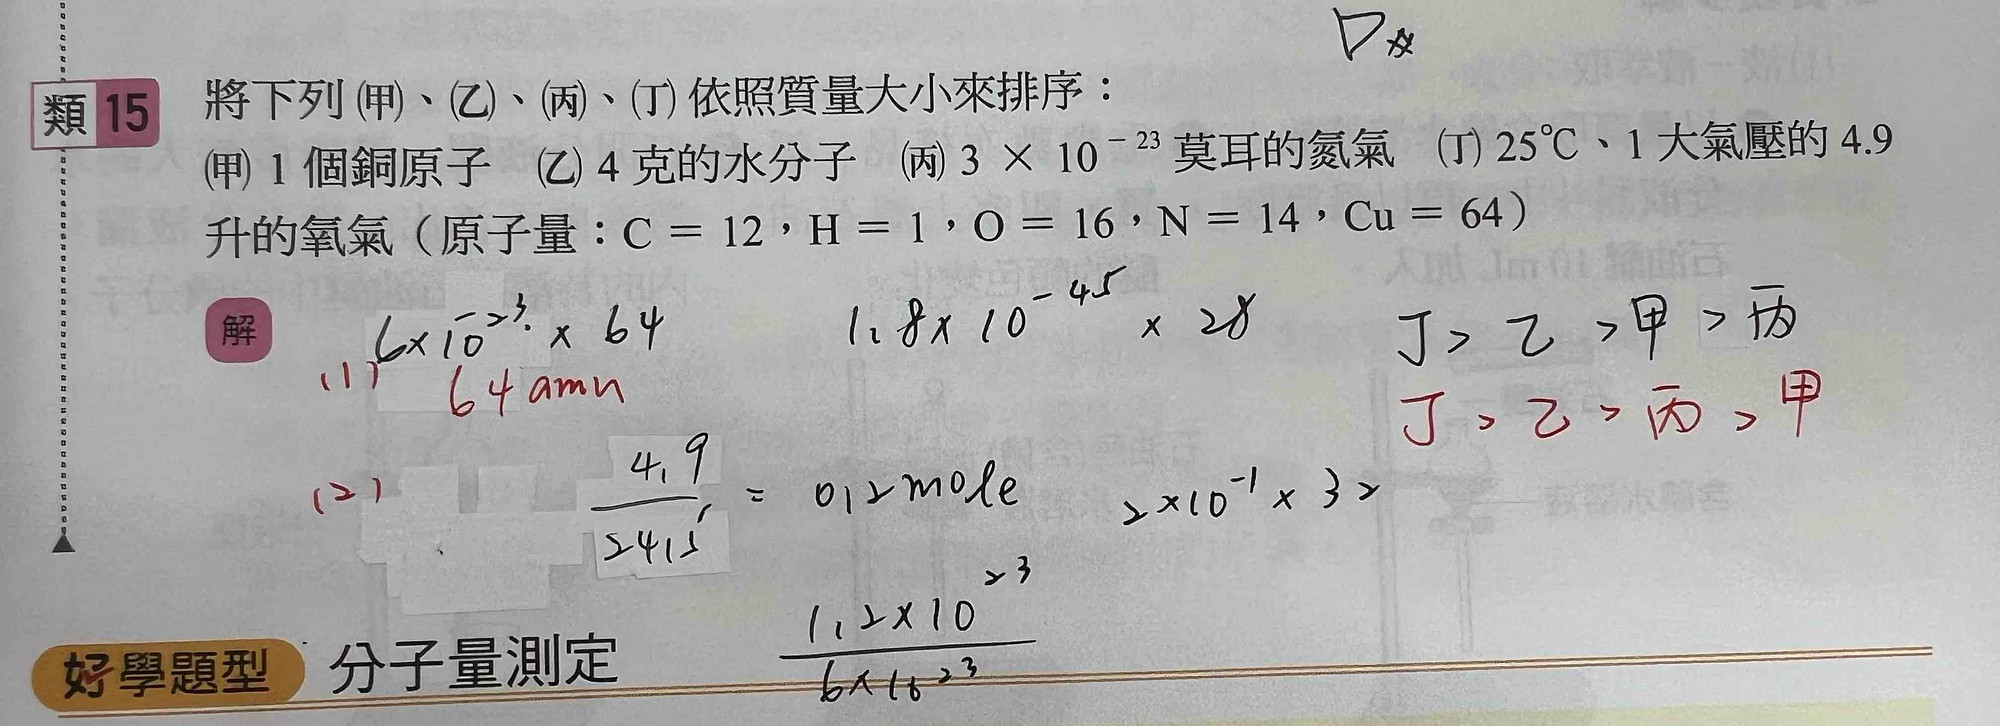 類15 將下列(甲)、(乙)、(丙)、(丁)依照質量大小來排序：
(甲) 1 個銅原子 (乙) 4 克的水分子 (丙) 3 × 10⁻²³ 莫耳的氮氣 (丁) 25℃、1 大氣壓的 4.9
升的氧氣（原子量：C = 12，H = 1，O = 16，N = 14，Cu = 64）
解
6×10⁻²³ × 64
1.8×10⁻⁴⁵ × 28
丁>乙>甲>丙
(1) 64 amu
丁>乙>丙>甲
(2)
4.9/24.5 = 0.2 mole
2×10⁻¹×32
1.2×10²³/6×10²³
好學題型 分子量測定